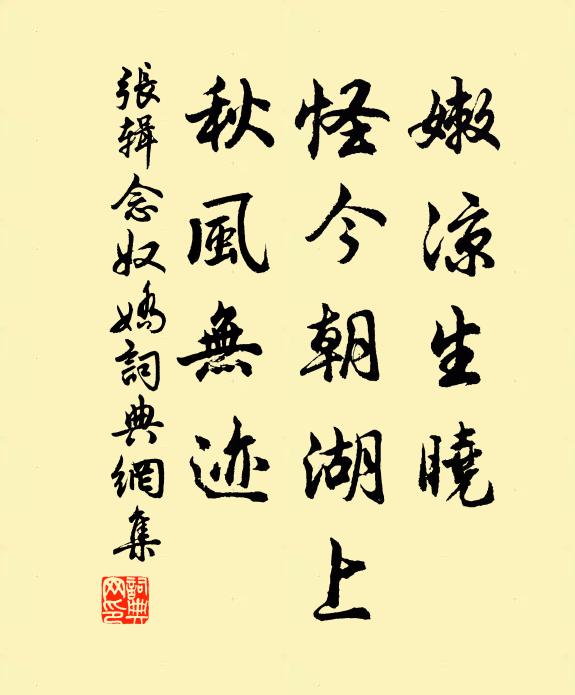 嫩涼生曉
怪今朝湖上
秋風無迹
張輯念奴嬌詞典網集
詞典網印